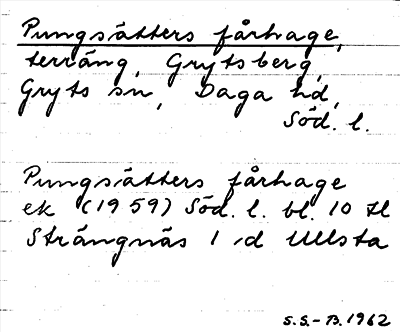 Pungsätters fårhage,
terräng, Grytsberg,
Gryts sn, Daga hd,
Söd. l.
Pungsätters fårhage
ek (1959) Söd. l. bl. 10 tl
Strängnäs 1 id Ullsta
S.S.-B. 1962